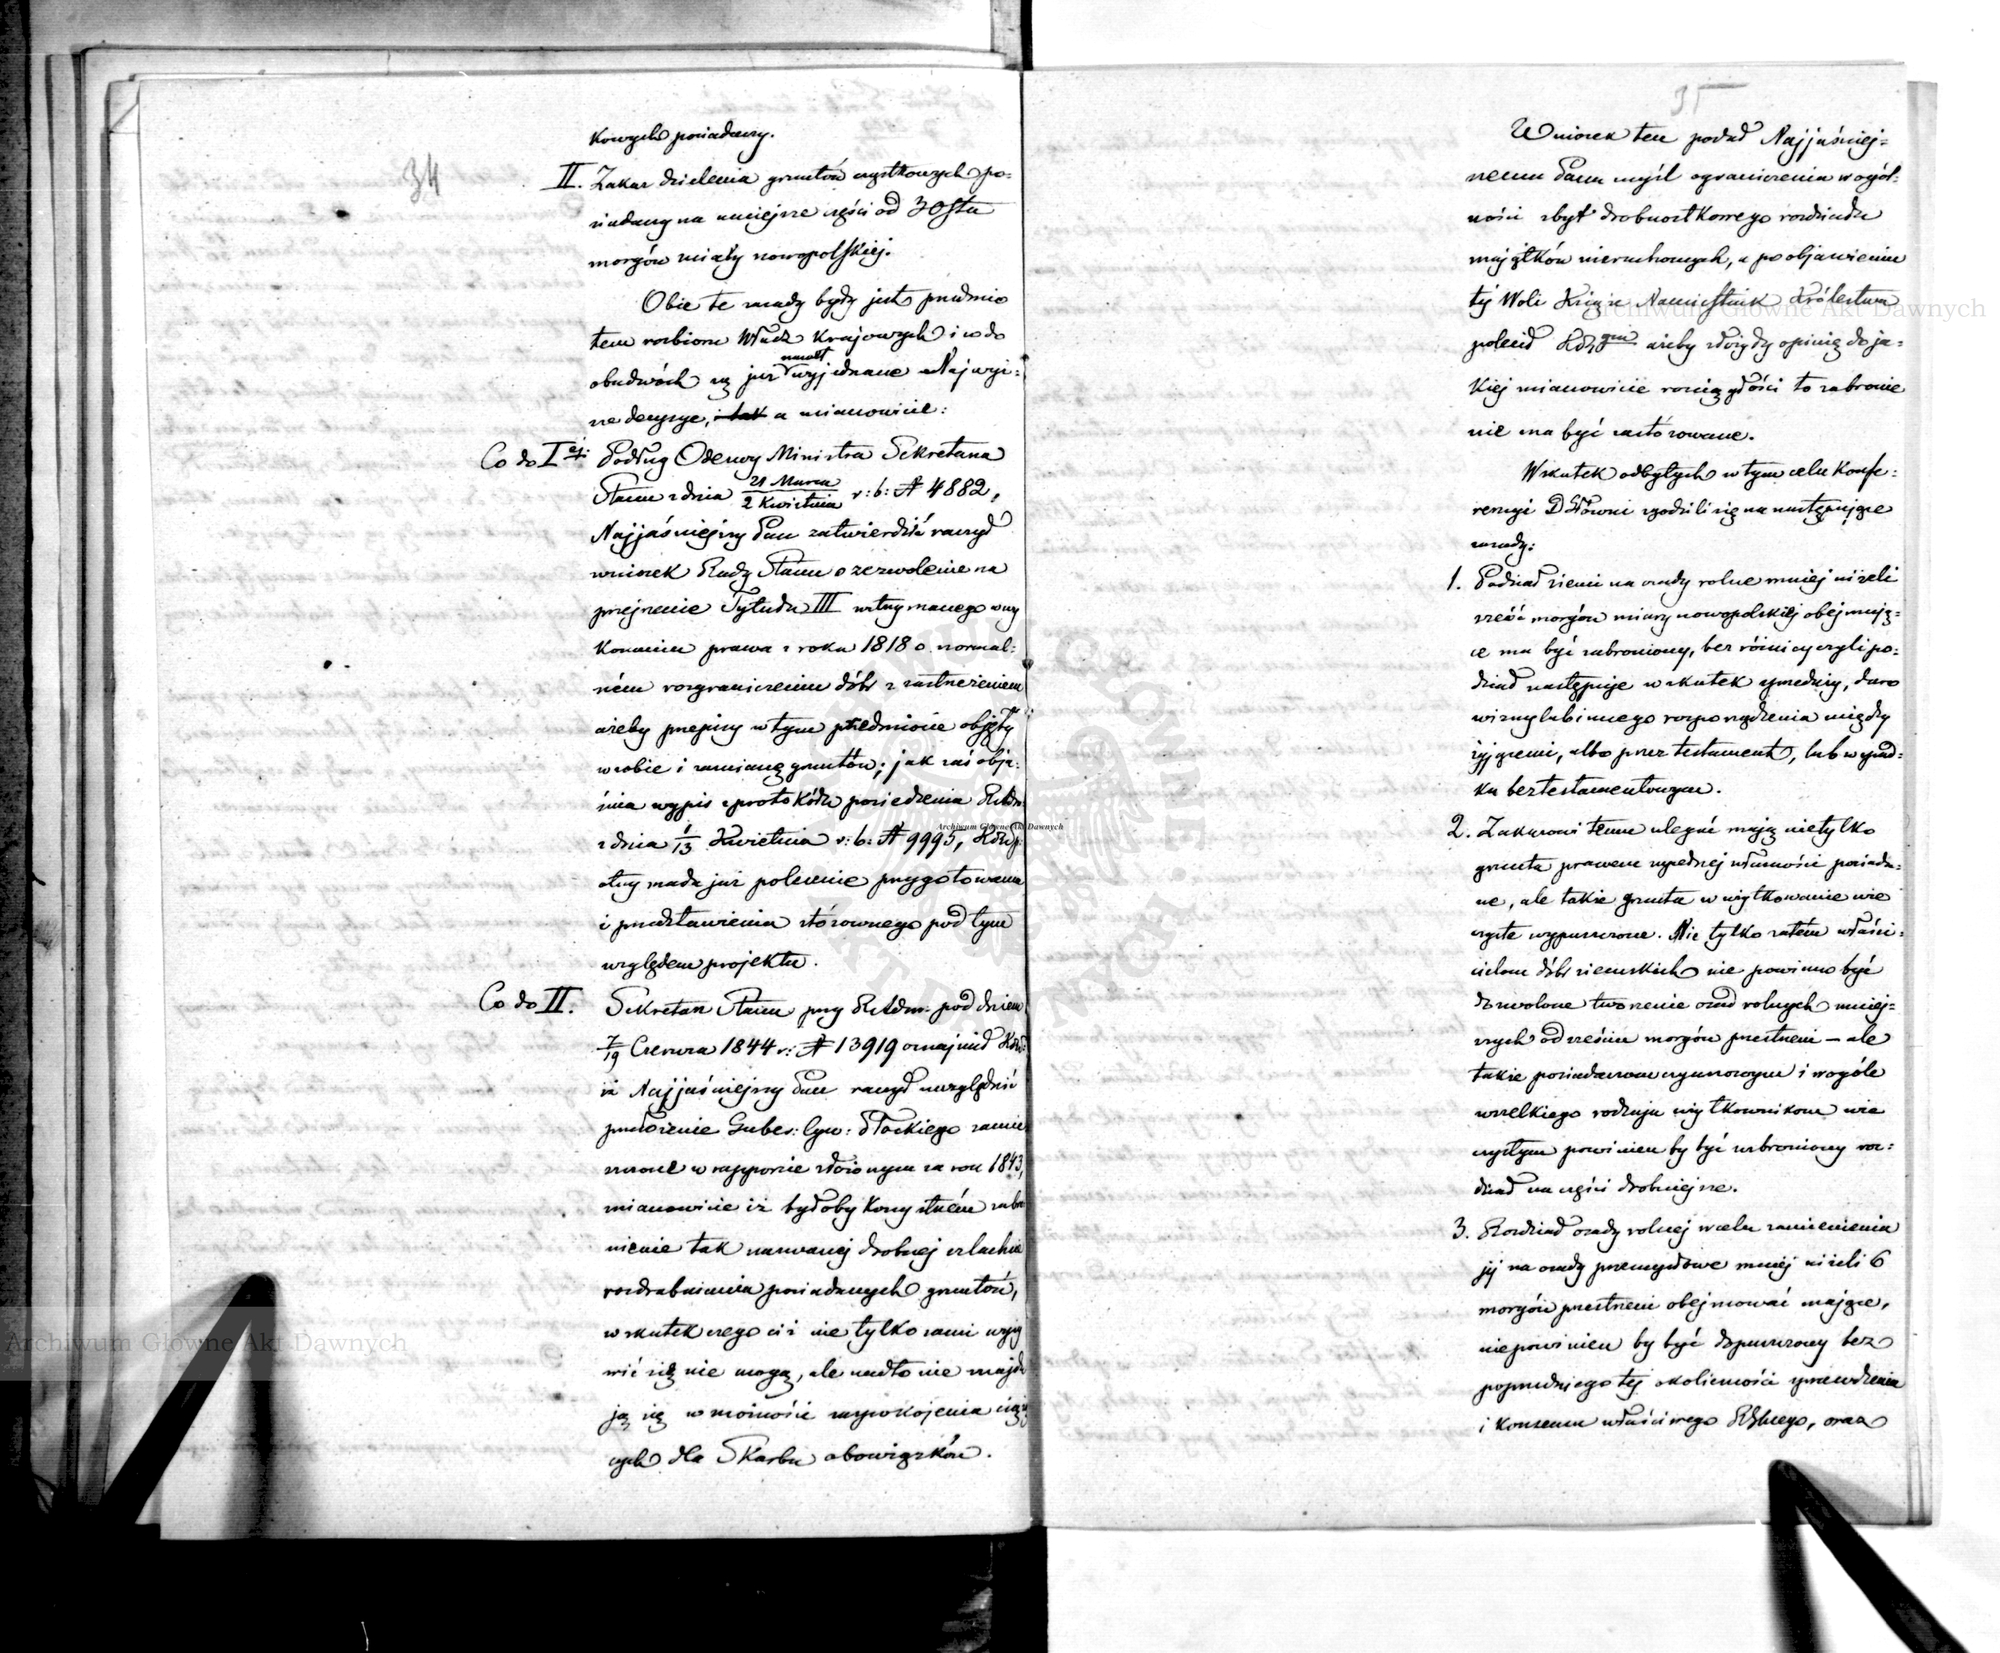 34
kowych posiadaczy.
II. Zakaz dzielenia gruntów cząstkowych po-
siadaczy na mniejsze części od 30stu
morgów miary nowopolskiej.
Obie te zasady były już przedmio
tem rozbioru Władz Krajowych i co do
obudwóch są już nawet wyjednane Najwyż:
sze decyzye, i tak a mianowicie:
Co do I ej: Podług Odezwy Ministra Sekretarza
Stanu z dnia 21 Marca / 2 Kwietnia r: b: № 4882,
Najjaśniejszy Pan zatwierdzić raczył
wniosek Rady Stanu o zezwolenie na
przejrzenie Tytułu III wstrzymanego w wy
konaniu prawa z roku 1818 o normal:
ném rozgraniczeniu dóbr z zastrzeżeniem
ażeby przepisy w tym przedmiocie objęły
w sobie i zamianę gruntów; jak zaś obja:
śnia wypis z protokółu posiedzenia RAdm
z dnia 1/13 Kwietnia r: b: № 9995, KRSpr:
otrzymała już polecenie przygotowania
i przedstawienia stósownego pod tym
względem projektu.
Co do II. Sekretarz Stanu przy RAdm: pod dniem
7/19 Czerwca 1844 r: № 13919 oznajmił KRS:
iż Najjaśniejszy Pan raczył uwzględnić
przełożenie Guber: Cyw: Płockiego zamie
szczone w rapporcie złożonym za rok 1843,
mianowicie iż byłoby korzystném zabro
nienie tak nazwanej drobnej szlachcie
rozdrabniania posiadanych gruntów,
wskutek czego ciż nie tylko sami wyży
wić się nie mogą, ale nadto nie znajdu
ją się w możności zaspokojenia ciążą
cych dla Skarbu obowiązków.
35
Wniosek ten podał Najjaśniej=
szemu Panu myśl ograniczenia w ogól:
ności zbyt drobnostkowego rozdziału
majątków nieruchomych, a po objawieniu
téj Woli Książe Namiestnik Królestwa
polecił ażeby złożyły opinię do ja=
kiej mianowicie rozciągłości to zabronie
nie ma być zastósowane.
Wskutek odbytych w tym celu Konfe:
rencyi zgodzili się na następujące
zasady:
1. Podział ziemi na osady rolne mniej niżeli
sześć morgów miary nowopolskiej obejmują=
ce ma być zabroniony, bez różnicy czyli po=
dział następuje w skutek sprzedaży, daro
wizny lub innego rozporządzenia między
żyjącemi, albo przez testament, lub w spad=
ku beztestamentowym.
2. Zakazowi temu ulegać mają nietylko
grunta prawem zupełnej własności posiada=
ne, ale także grunta w użytkowanie wie
czyste wypuszczone. Nie tylko zatém właści=
cielom dóbr ziemskich nie powinno być
dozwolone tworzenie osad rolnych mniej=
szych od sześciu morgów przestrzeni – ale
także posiadaczom czynszowym i wogóle
wszelkiego rodzaju użytkownikom wie
czystym powinien by być zabroniony roz=
dział na części drobniejsze.
3. Rozdział osady rolnej w celu zamienienia
jéj na osady przemysłowe mniej niżeli 6
morgów przestrzeni obejmować mające,
niepowinien by być dopuszczony bez
poprzedniego téj okoliczności sprawdzenia
i konsensu właściwego RGbnego, oraz